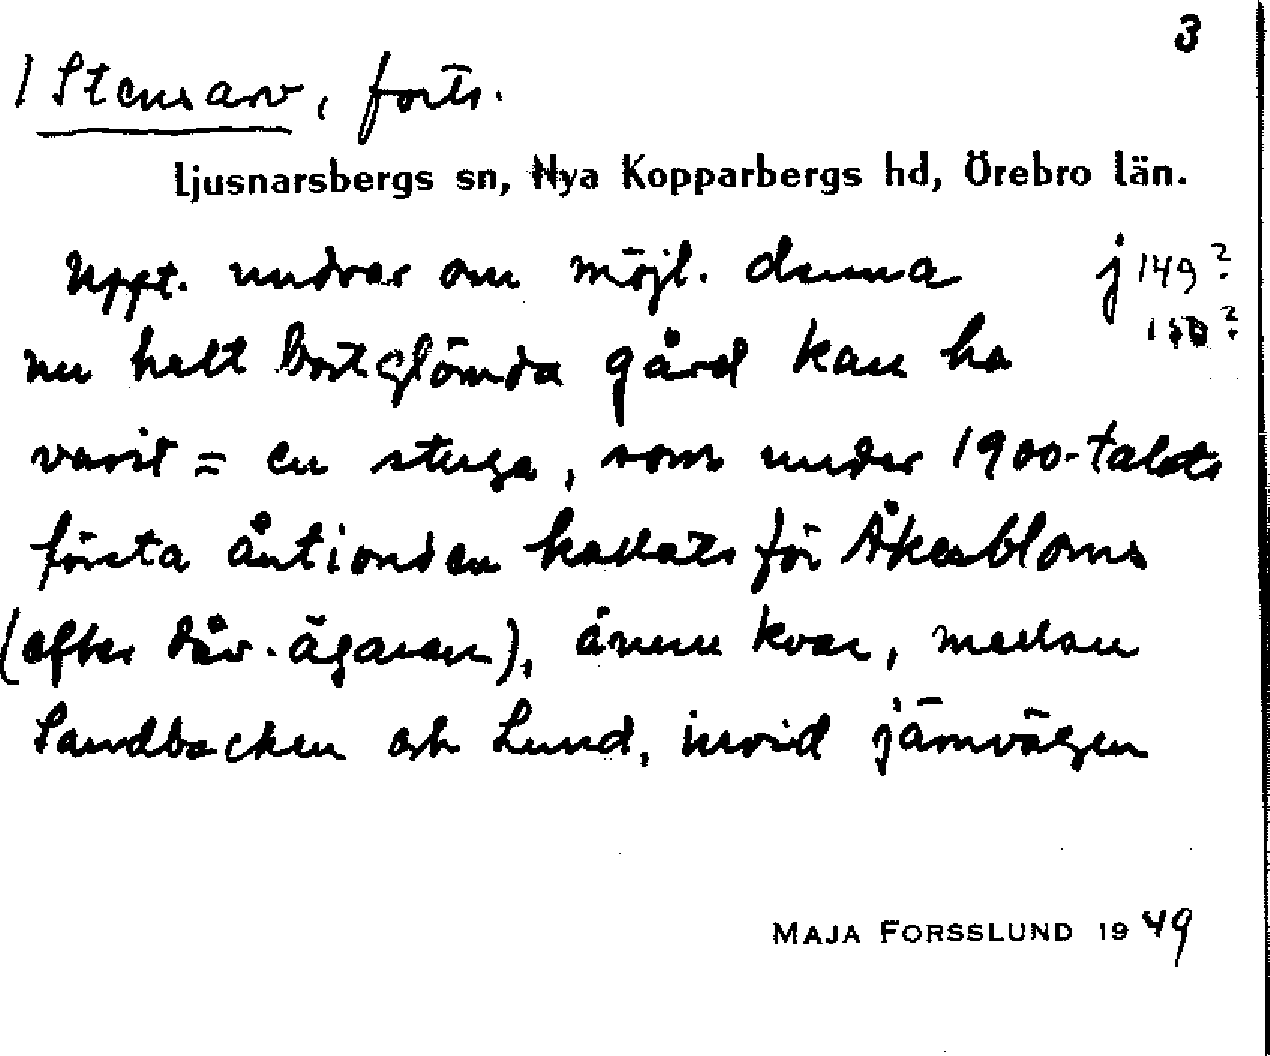 3
/ Stensarv, forts.
Ljusnarsbergs sn, Nya Kopparbergs hd, Örebro län.
Uppt. undrar om möjl. denna j 149?
nu helt bortglömda gård kan ha 150?
varit = en stuga, som under 1900-talets
första årtionden kallats för Åkerbloms
(efter dåv. ägaren), ännu kvar, mellan
Sandbacken och Lund, invid järnvägen
MAJA FORSSLUND 1949